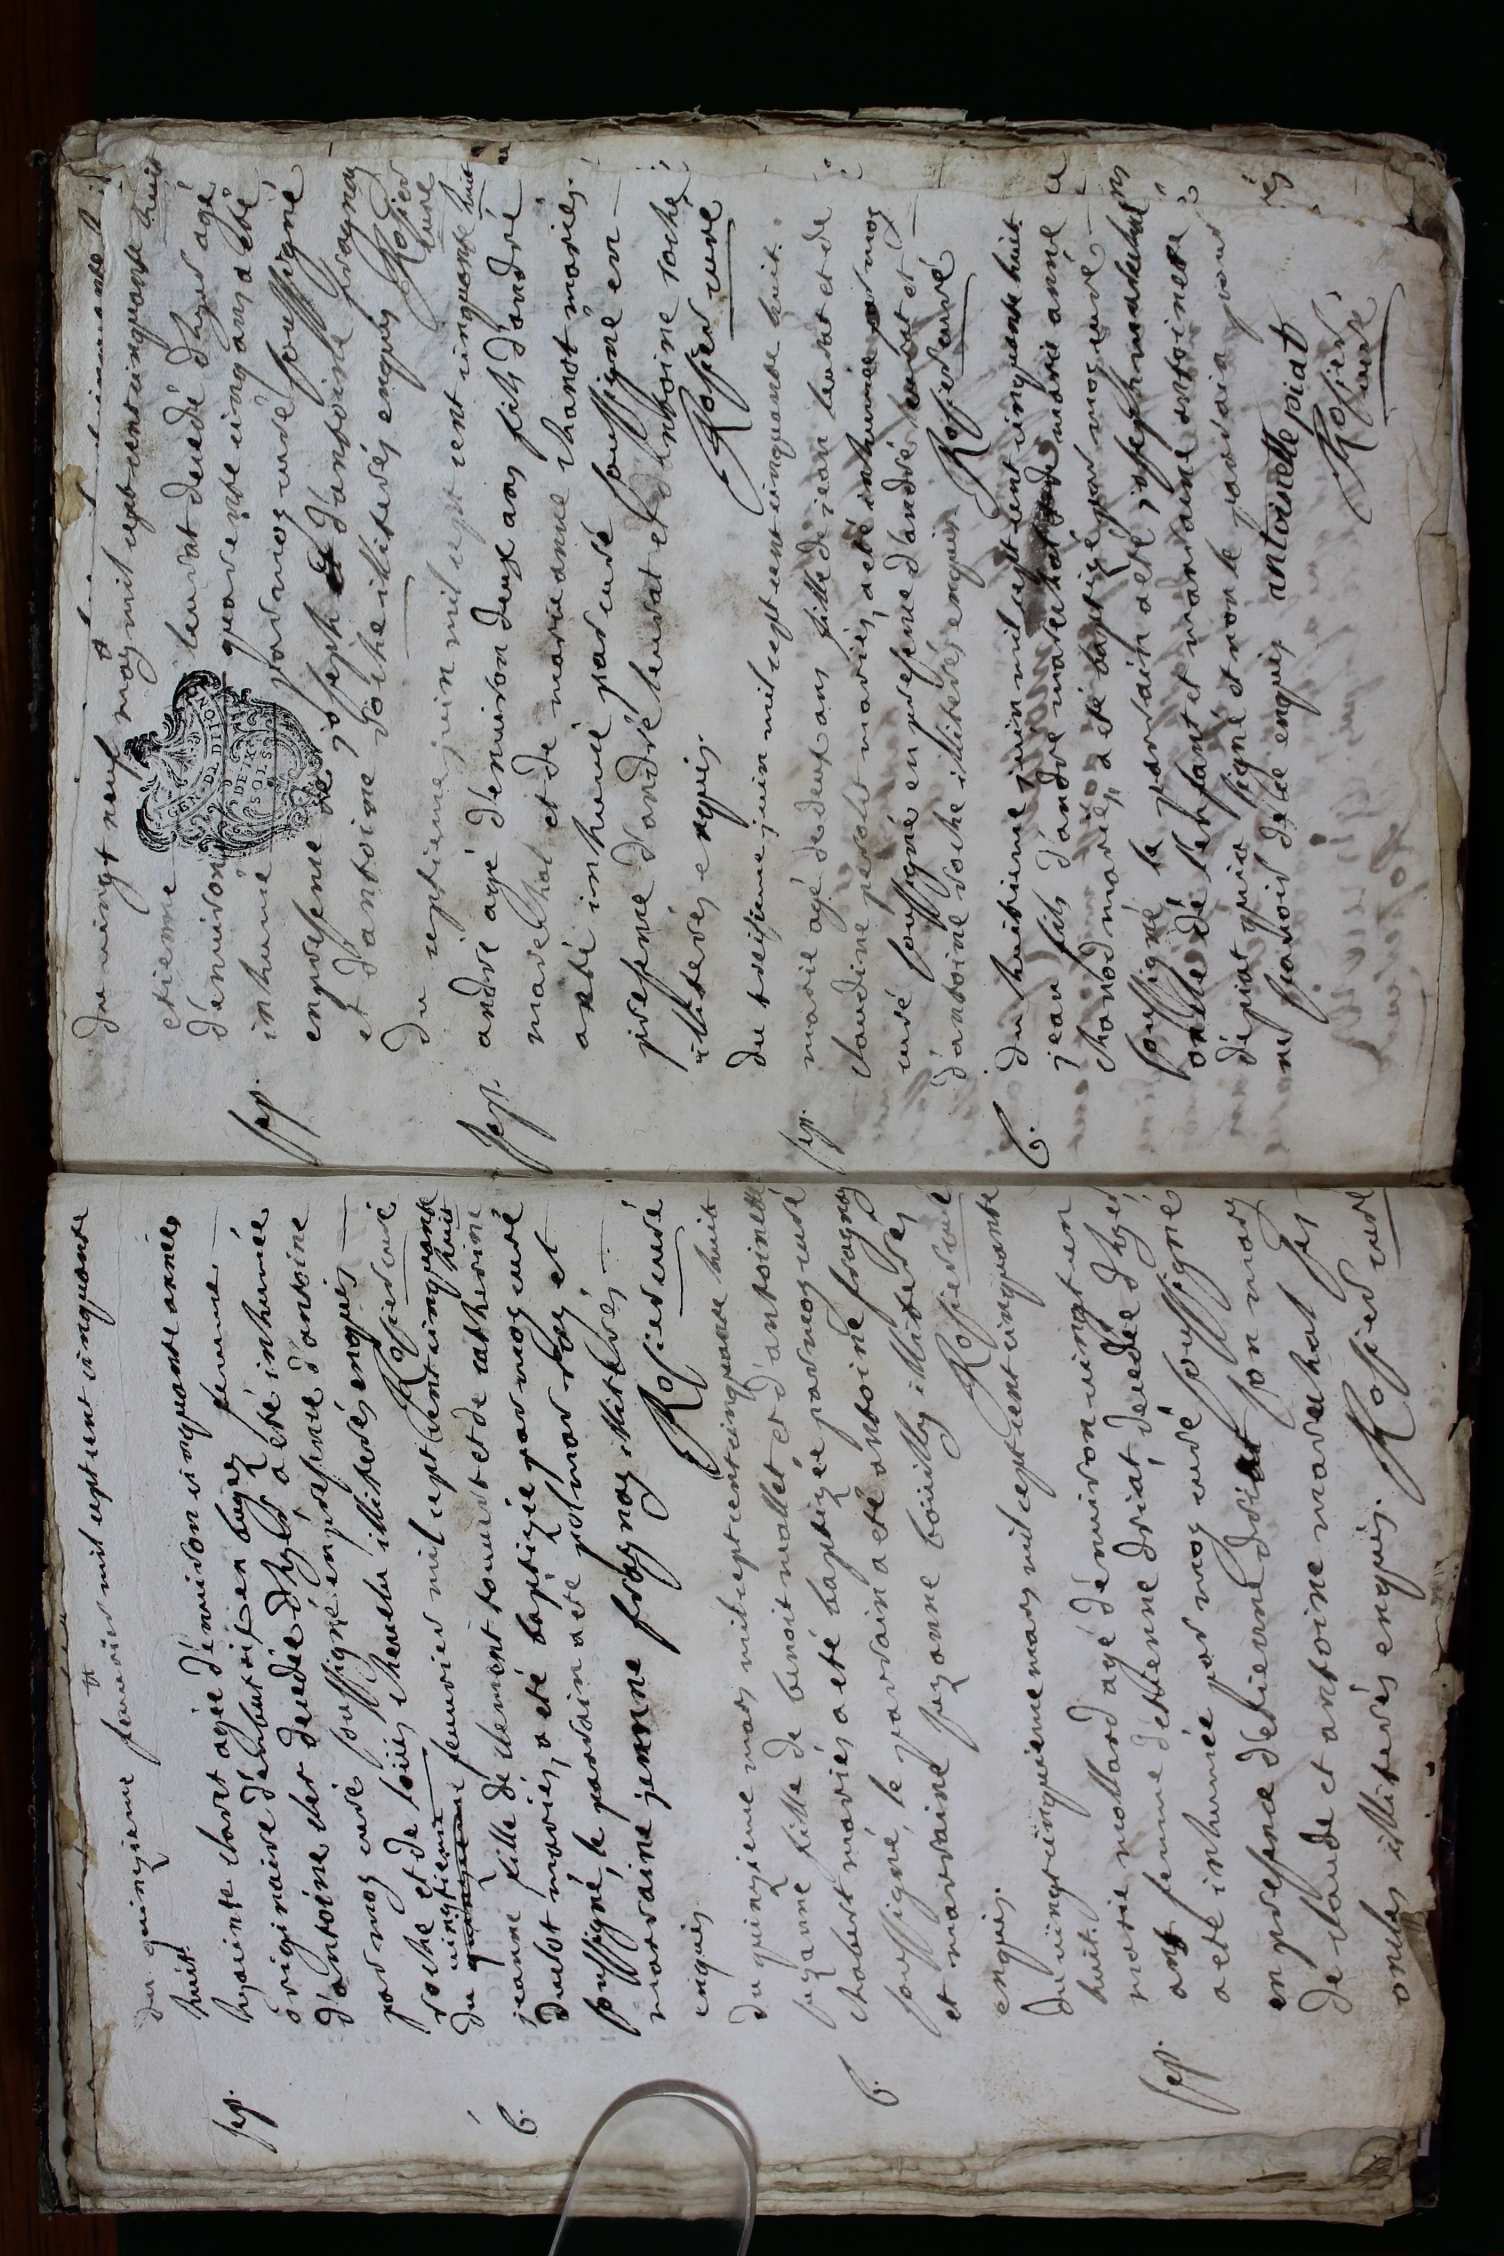 du quinzieme fevrier mil sept cent cinquante
huit
sep.
agée d'environ cinquante années
originaire d'ambutrix en bugey femme
d'antoine decedée d'hyer a eté inhumée
par moy curé soussigné en presence d'antoine
roche et de loüis illiterés enquis
Rosier curé
vingtieme
du quinzieme fevrier mil sept cent cinquante
huit
B.
jeanne fille de clement et de catherine
mariés, a eté baptizée par moy curé
soussigné, le parrain a eté et
marraine jeanne fragnay illiterés
enquis
Rosier curé
du quinzieme mars mil sept cent cinquante huit
B.
suzanne fille de benoit mallet et d'antoinette
chabert mariés a eté baptizée par moy curé
soussigné, le parrain a eté antoine fragnay
et marraine suzanne boüilly illiterés
enquis.
Rosier curé
du vingt cinquieme mars mil sept cent cinquante
huit.
sep.
marie mollard agé d'environ vingt un
ans femme d'etienne driat decedée d'hyer
a eté inhumée par moy curé soussigné
en presence d'etienne driat son mary
de claude et antoine marechal ses
oncles illiterés enquis.
Rosier curé
du vingt neuf may mil sept cent cinquante huit
GEN. DE DIJON
DEUX SOLS
sep.
etienne leurat decedé d'hyer agé
d'environ quarente cinq ans a eté
inhumé par moy curé soussigné
en presence de joseph et d'antoine fragnay
et d'antoine roche illiterés enquis
Rosier curé
du septieme juin mil sept cent cinquante huit
sep.
andré agé d'environ deux ans fils d'andré
marechal et de marie anne chanot mariés.
a eté inhumé par curé soussigné en
presence d'andré leurat et d'antoine roche
illiterés enquis.
Rosier curé
du treisieme juin mil sept cent cinquante huit.
sep.
marie agé de deux ans fille de jean leurat et de
claudine perolet mariés, a eté inhumée par moy
curé soussigné en presence d'andré leurat et
d'antoine roche illiterés enquis.
Rosier curé
B.
du huitieme juin mil sept cent cinquante huit
jean fils d'andré marechal et de marie anne
chanod mariés, a eté baptizé par moy curé
soussigné le parrain a eté joseph marechal
oncle de l'enfant et marraine antoinette
depiat qui a signé et non le parrain pour
ne sçavoir de ce enquis
antoinette piat
Rosier curé